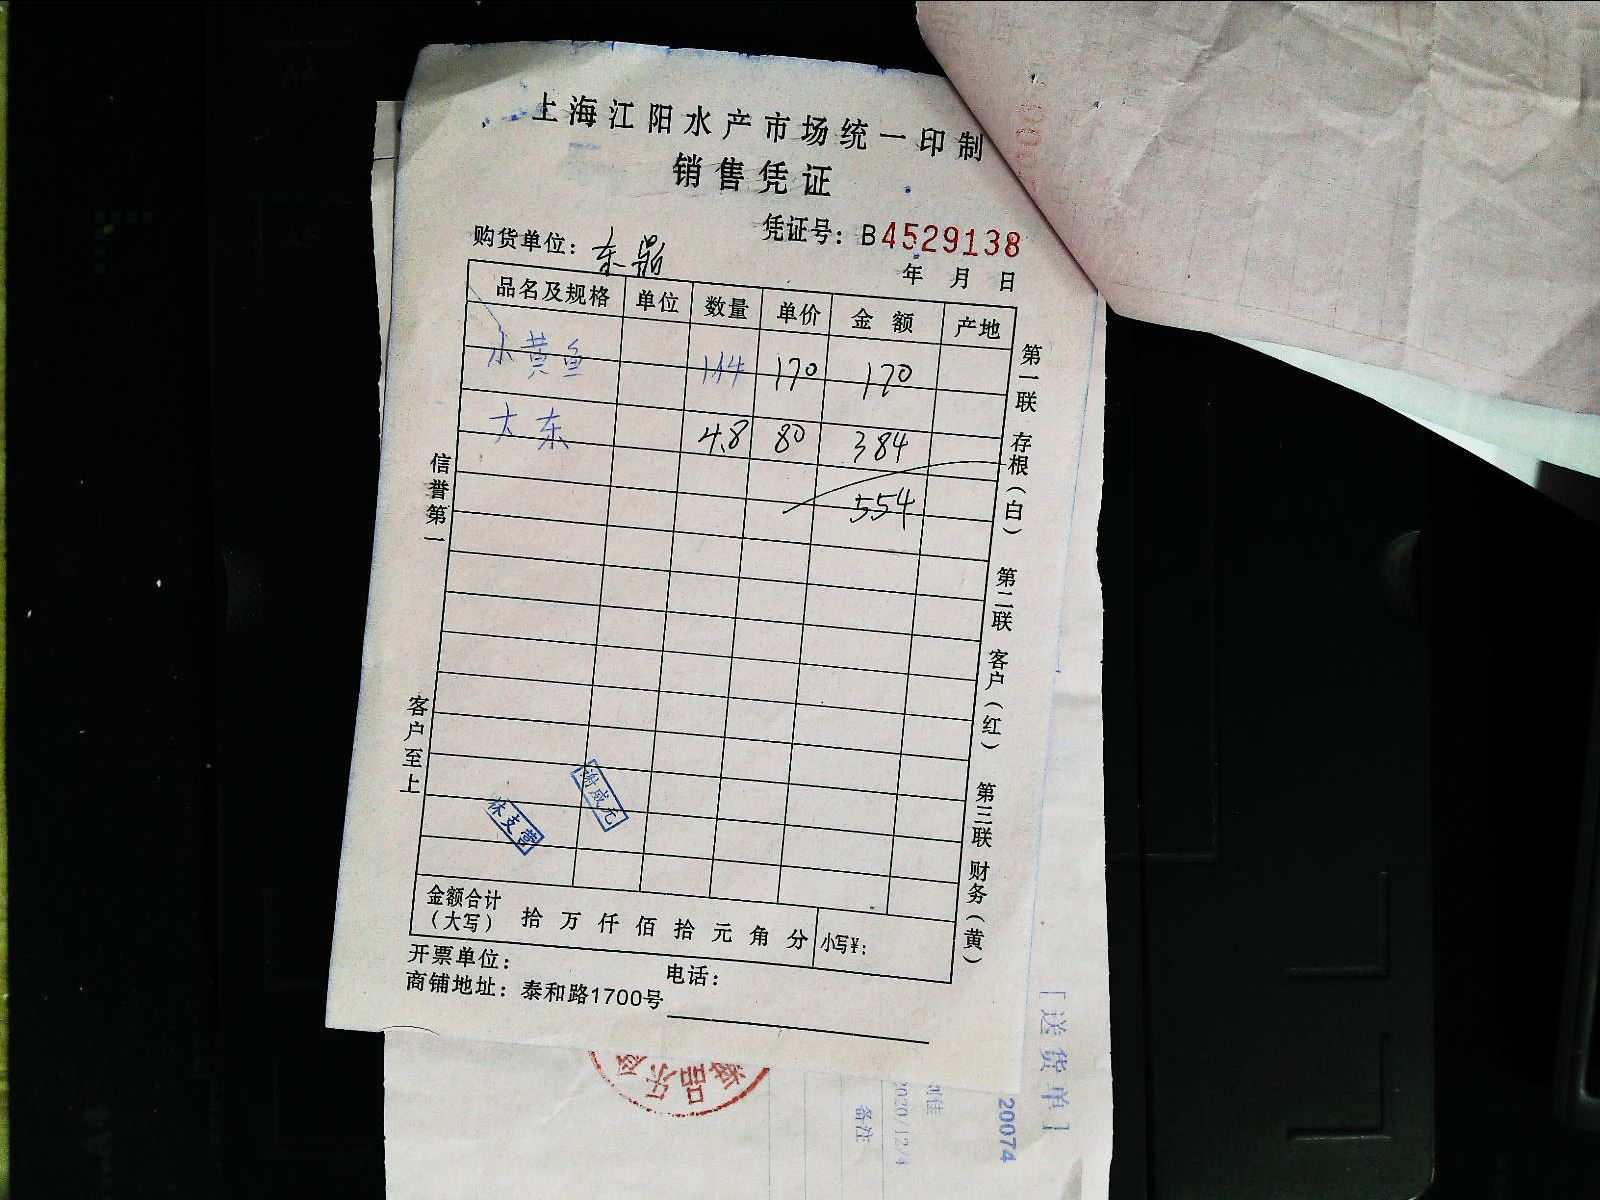 上海江阳水产市场统一印制
销售凭证
凭证号：B4529138
购货单位：东鼎
年 月 日
品名及规格 单位 数量 单价 金额 产地
小黄鱼 170 170
大东 4.8 80 384
554
信誉第一
客户至上
第一联 存根（白） 第二联 客户（红） 第三联 财务（黄）
谢成元
休支营
金额合计（大写） 拾 万 仟 佰 拾 元 角 分 小写¥：
开票单位： 电话：
商铺地址：泰和路1700号
[送货单]
20074
2020/12/4
备注